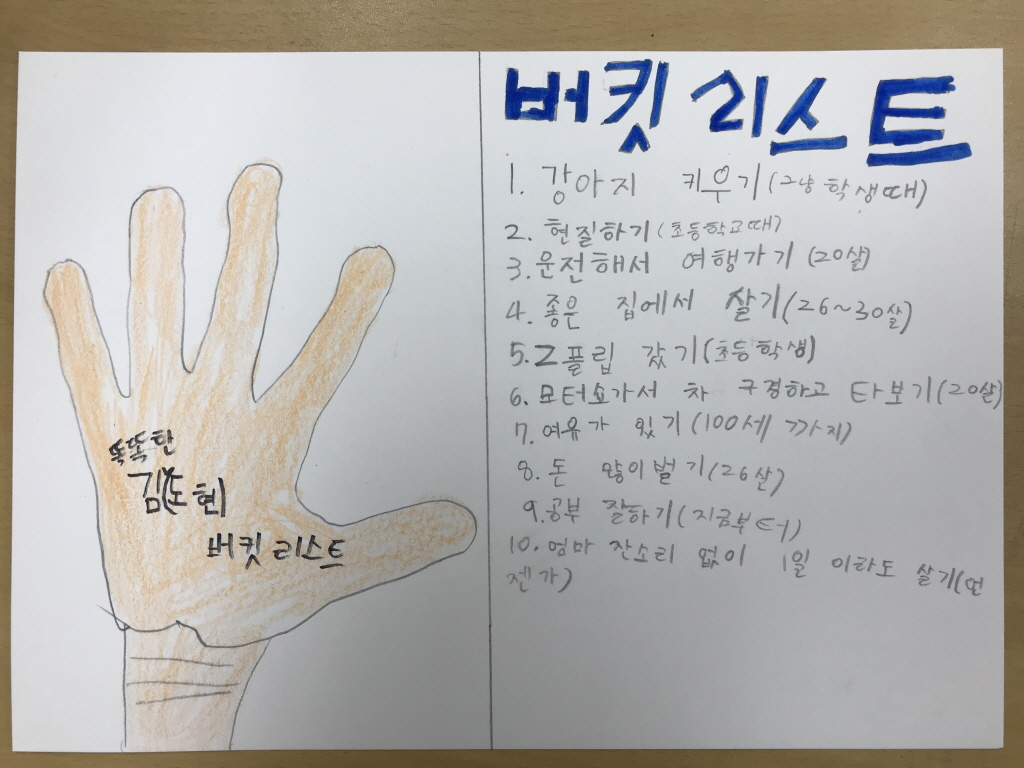 똑똑한
김도현
버킷리스트
버킷 리스트
1. 강아지 키우기(그냥 학생때)
2. 현질하기(초등학교때)
3. 운전해서 여행가기(20살)
4. 좋은 집에서 살기(26~30살)
5. Z플립 갔기(초등학생)
6. 모터쇼가서 차 구경하고 타보기(20살)
7. 여유가 있기(100세 까지)
8. 돈 많이벌기(26살)
9. 공부 잘하기(지금부터)
10. 엄마 잔소리 없이 1일 이라도 살기(언
젠가)